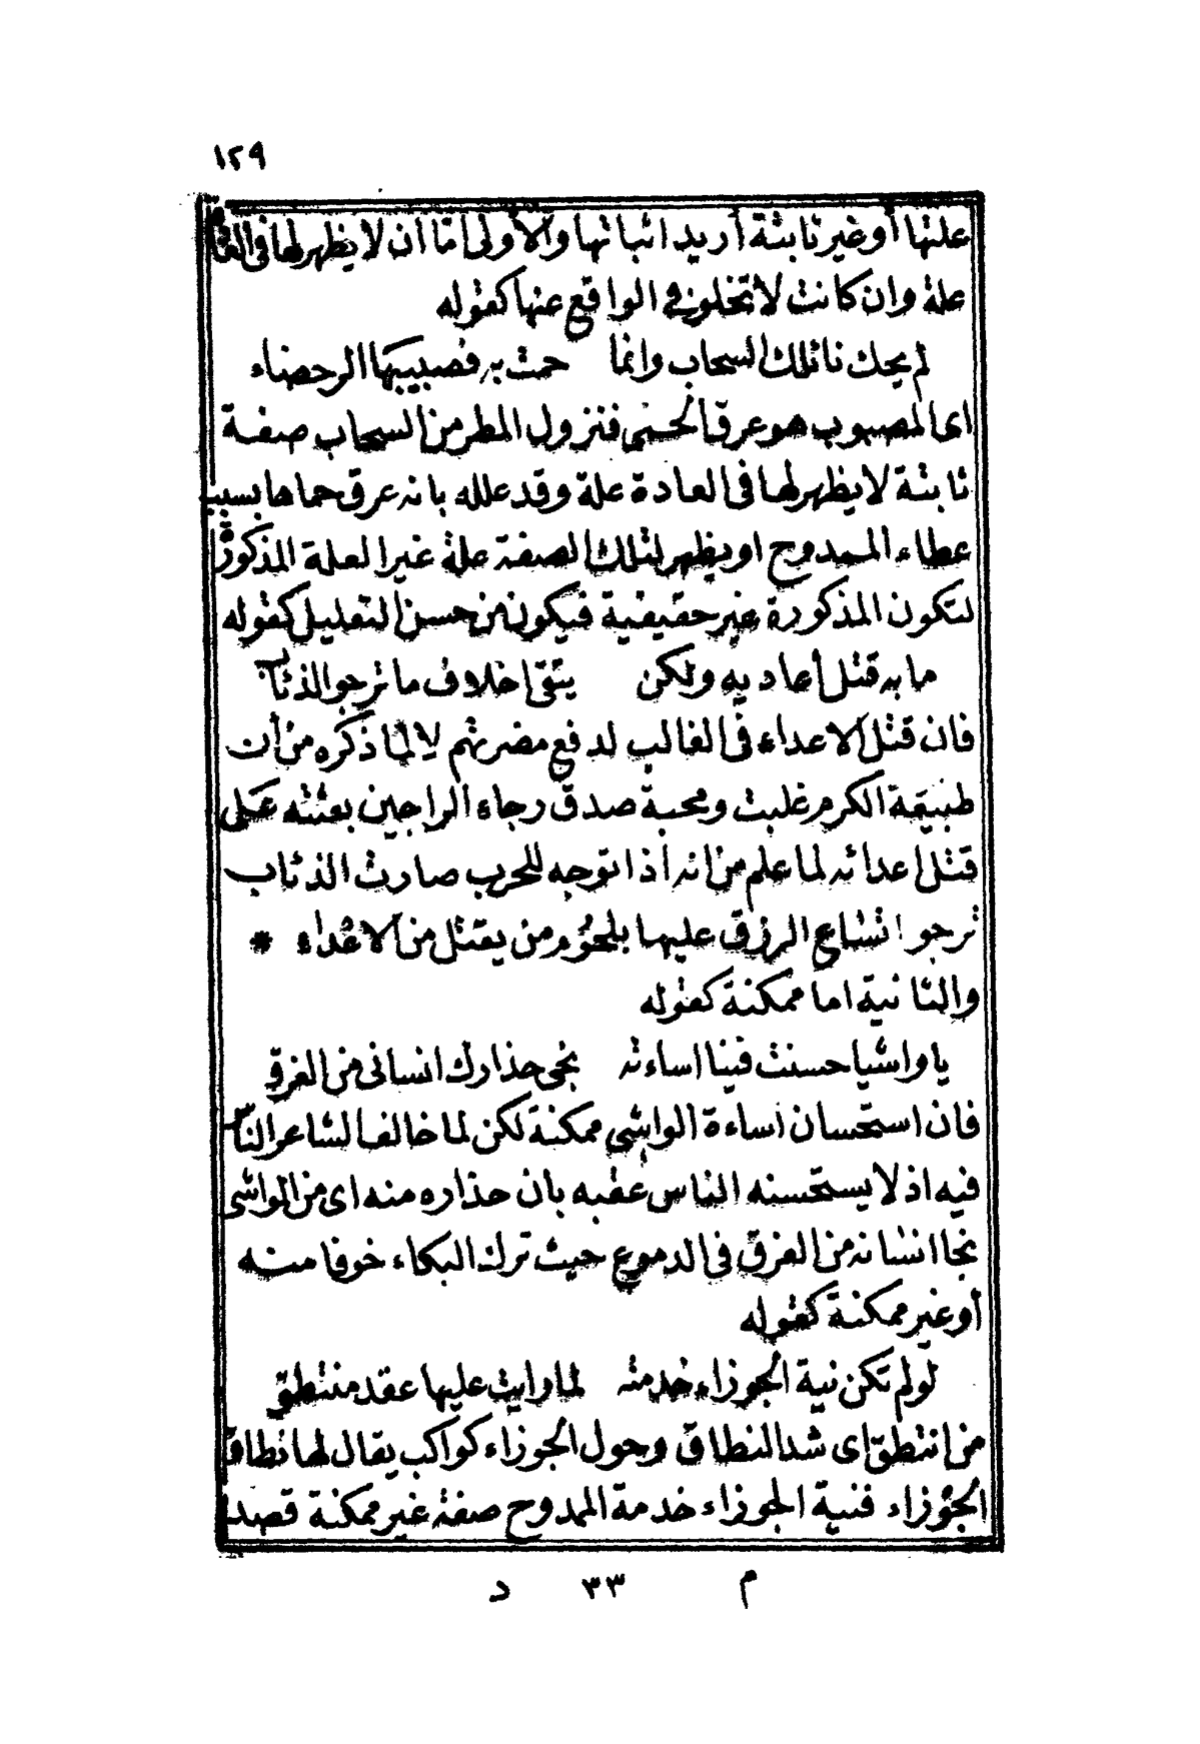 ١٢٩
علتها أو غير ثابتة أريد اثباتها والأولى امّا ان لا يظهر لها فى العادة
علة وان كانت لا تخلو فى الواقع عنها كقوله
لم يحك نائلك السحاب وانما حمت به فصبيبها الرحضاء
اى المصبوب هو عرق الحمى فنزول المطر من السحاب صفة
ثابتة لا يظهر لها فى العادة علة وقد علله بانه عرق حماها بسبب
عطاء الممدوح او يظهر لتلك الصفة علة غير العلة المذكورة
لتكون المذكورة غير حقيقية فيكون من حسن التعليل كقوله
ما به قتل أعاديه ولكن يتقى اخلاف ما ترجو الذئاب
فان قتل الاعداء فى الغالب لدفع مضرتهم لا لما ذكره من أن
طبيعة الكرم غلبت ومحبة صدق رجاء الراجين بعثته على
قتل اعدائه لما علم من انه اذا توجه للحرب صارت الذئاب
ترجو اتساع الرزق عليها بلحوم من يقتل من الاعداء *
والثانية اما ممكنة كقوله
يا واشيا حسنت فينا اساءته نجى حذارك انسانى من الغرق
فان استحسان اساءة الواشى ممكنة لكن لما خالف الشاعر الناس
فيه اذ لا يستحسنه الناس عقبه بان حذاره منه اى من الواشى
نجا انسانه من الغرق فى الدموع حيث ترك البكاء خوفا منه
أو غير ممكنة كقوله
لو لم تكن نية الجوزاء خدمته لما رايت عليها عقد منتطق
من انتطق اى شد النطاق وحول الجوزاء كواكب يقال لها نطاق
الجوزاء فنية الجوزاء خدمة الممدوح صفة غير ممكنة قصد
م ٣٣ د